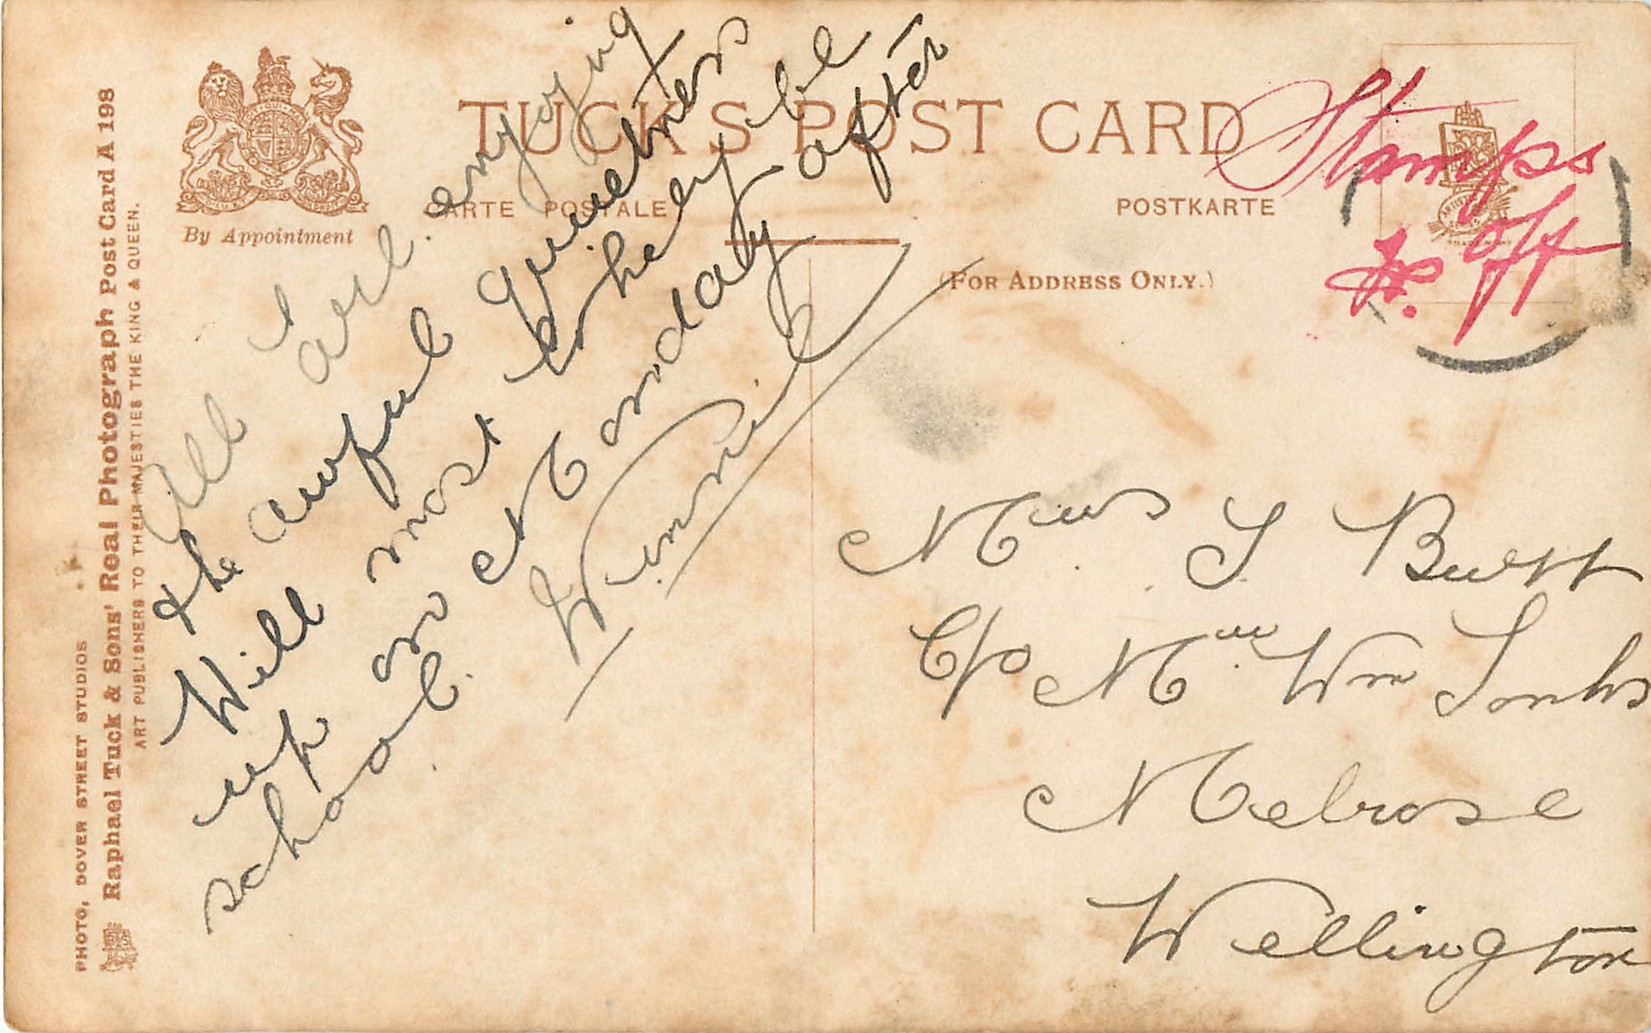 PHOTO, DOVER STREET STUDIOS
Raphael Tuck & Sons' Real Photograph Post Card A 198
ART PUBLISHERS TO THEIR MAJESTIES THE KING & QUEEN.
By Appointment
TUCK'S POST CARD
CARTE POSTALE
POSTKARTE
(FOR ADDRESS ONLY.)
Stamps
off
All I are enyoying
the awful Quietness
Will most likely be
up on Monday after
school.
Winnie
Miss I Butt
C/o Mrs Wm
Melrose
Wellington